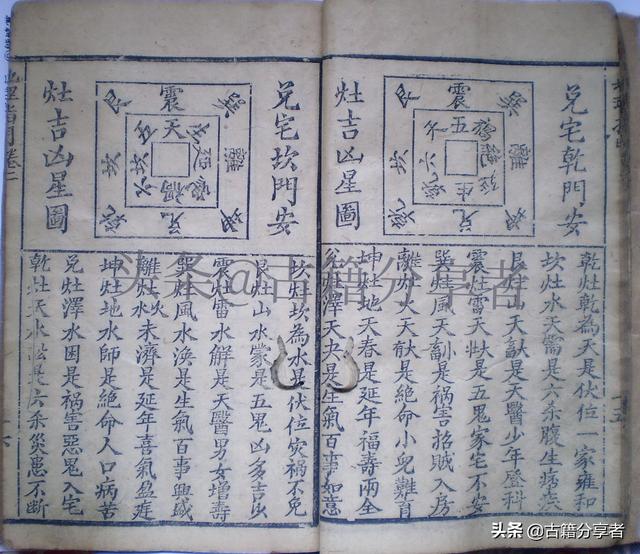 兌宅乾門安
震
巽
離
坤
兌
乾
坎
艮
五
六
生
灶吉凶星圖
乾灶乾為天是伏位一家雍和
坎灶水天需是六杀腹生病疾
艮灶山天畜是天醫少年登科
震灶雷天壮是五鬼家宅不安
巽灶風天畜是祸害招賊入房
離灶火天是絕命小兒難育
坤灶地天春是延年福壽兩全
兌灶澤天夬是生氣百事如意
兌宅坎門安
震
巽
離
坤
兌
乾
坎
艮
天
禍
灶吉凶星圖
坎灶坎為水是伏位灾禍不免
艮灶山水蒙是五鬼凶多吉少
震灶雷水解是天醫男女增壽
巽灶風水渙是生氣百事興盛
離灶火水未濟是延年喜氣盈庭
坤灶地水師是絕命人口病苦
兌灶澤水困是祸害惡鬼入宅
乾灶天水訟是六杀災患不断
头条@古籍分享者
头条 @古籍分享者